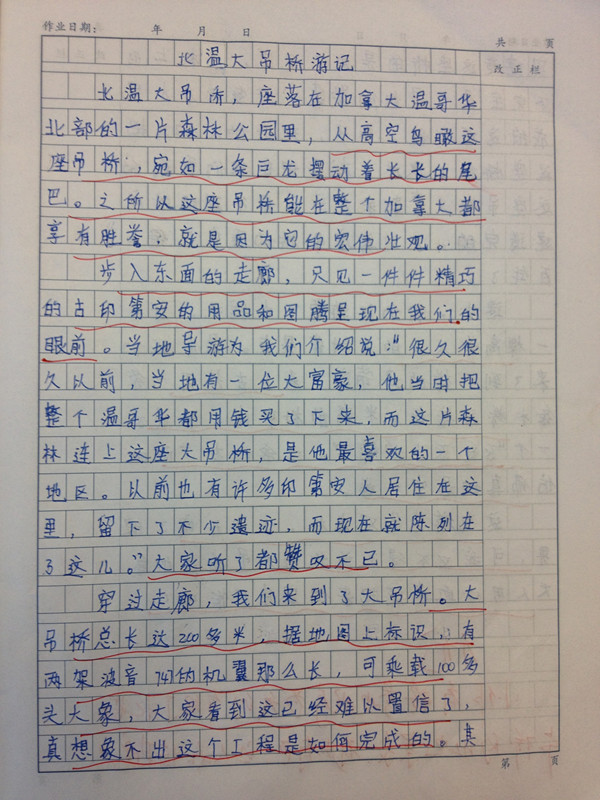 作业日期： 年 月 日 共 页
北温大吊桥游记 改正栏
北温大吊桥，座落在加拿大温哥华
北部的一片森林公园里，从高空鸟瞰这
座吊桥，宛如一条巨龙摆动着长长的尾
巴。之所以这座吊桥能在整个加拿大都
享有胜誉，就是因为它的宏伟壮观。
步入东面的走廊，只见一件件精巧
的古印第安的用品和图腾呈现在我们的
眼前。当地导游为我们介绍说：“很久很
久以前，当地有一位大富豪，他当时把
整个温哥华都用钱买了下来，而这片森
林连上这座大吊桥，是他最喜欢的一个
地区。以前也有许多印第安人居住在这
里，留下了不少遗迹，而现在就陈列在
了这儿。”大家听了都赞叹不已。
穿过走廊，我们来到了大吊桥。大
吊桥总长达200多米，据地图上标识，有
两架波音747的机翼那么长，可乘载100多
头大象，大家看到这已经难以置信了，
真想象不出这个工程是如何完成的。其
第 页